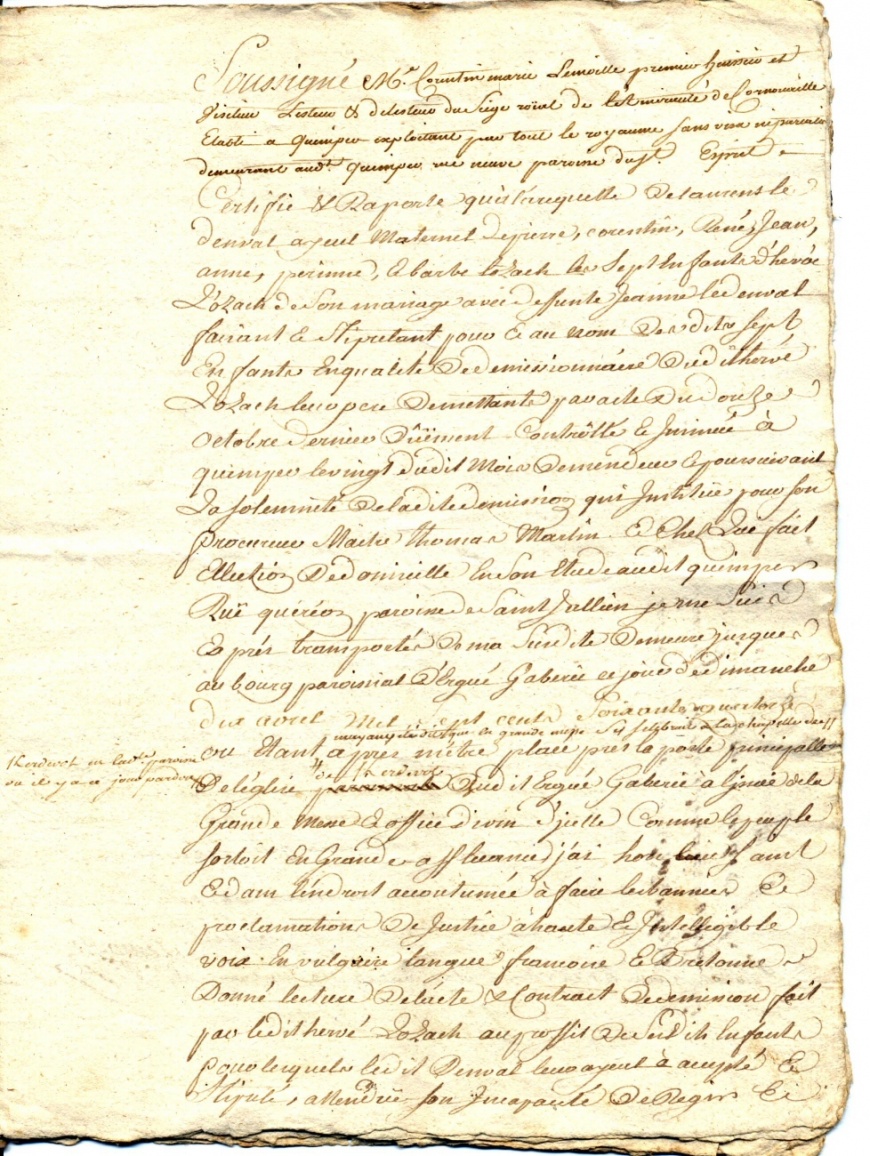 Soussigné Mr. Corentin marie Lemoille premier huissier et
Visiteur Lesteur & delesteur du Siege roïal de Lamirauté de Cornouaille
Etabli a Quimper exploitant par tout le royaume sans visa ni pareatis
demeurant audt. Quimper rue neuve paroisse du St. Esprit
Certifie & Raporte qu'a la requette De Laurens le
denval ayeul Maternel de pierre, corentin, René, Jean,
anne, perinne, & barbe Lozach les Sept Enfants d'hervé
Lozach de Son mariage avec deffunte Jeanne le denval
faisant & Stipulant pour & au nom Desdits Sept
Enfants En qualité De demissionnaires Dudit hervé
Lozach leur pere Demettant par acte Du douze
octobre dernier Düement Controllé & Insinué à
quimper le vingt dudit Mois Demandeur & poursuivant
La solemnité De ladite demission qui Institue pour son
procureur Maitre Thomas Martin & Chez Luÿ fait
Election De domicille En Son Etude audit quimper
Ruë quéréon paroisse de Saint Jullien je me Suis
Exprés transporté De ma Susdite Demeure jusques
au bourg paroissial D'Ergué Gaberic ce jour de dimanche
dix avril Mil Sept cents Soixante quatorze
en grande messe Se Selebroit a La chapelle de //
ou Etant apres m'etre placé prés la porte principalle
// Kerdevot en ladte. paroisse
ou il y a ce jour pardon
De léglise // de Kerdevot Dudit Ergué Gaberic à l'issüe de la
Grande Messe & office divin d'jcelle Comme le peuple
sortoit En Grande affluance j'ai hors lieu Saint
& dans l'endroit accoutumée à faire les bannies &
proclamations De Justice à haute & Intelligible
voix En vulgaire langue francoise & Bretonne
Donné lecture De l'acte & Contract De demission fait
par ledit hervé Lozach au proffit De Sesdits Enfants
pour lesquels ledit Denval leur ayeul à accepté &
Stipulé, attendüe son Incapacité De Regir &